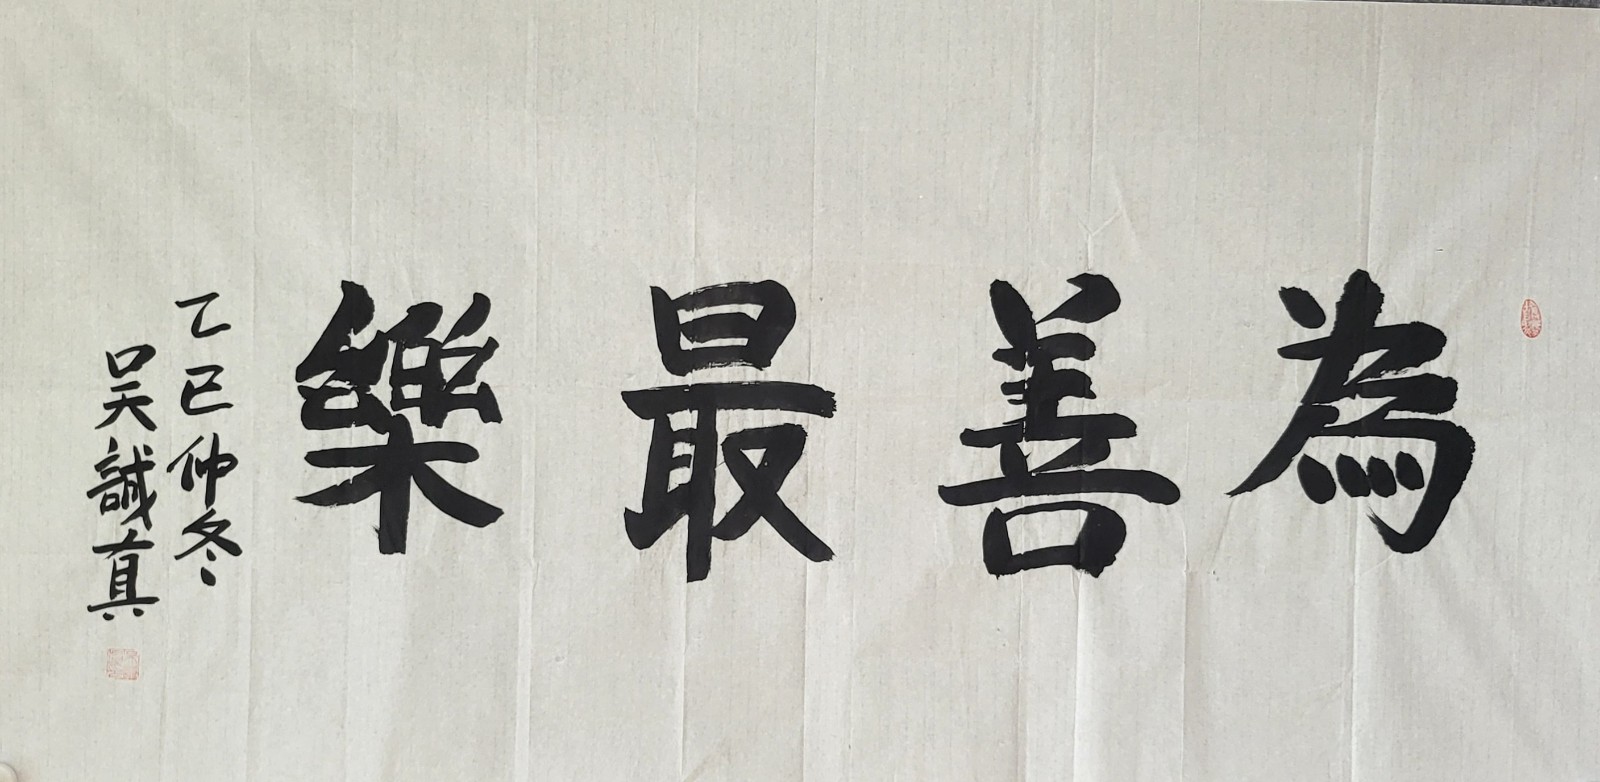 為善最樂
乙巳仲冬
吴誠真